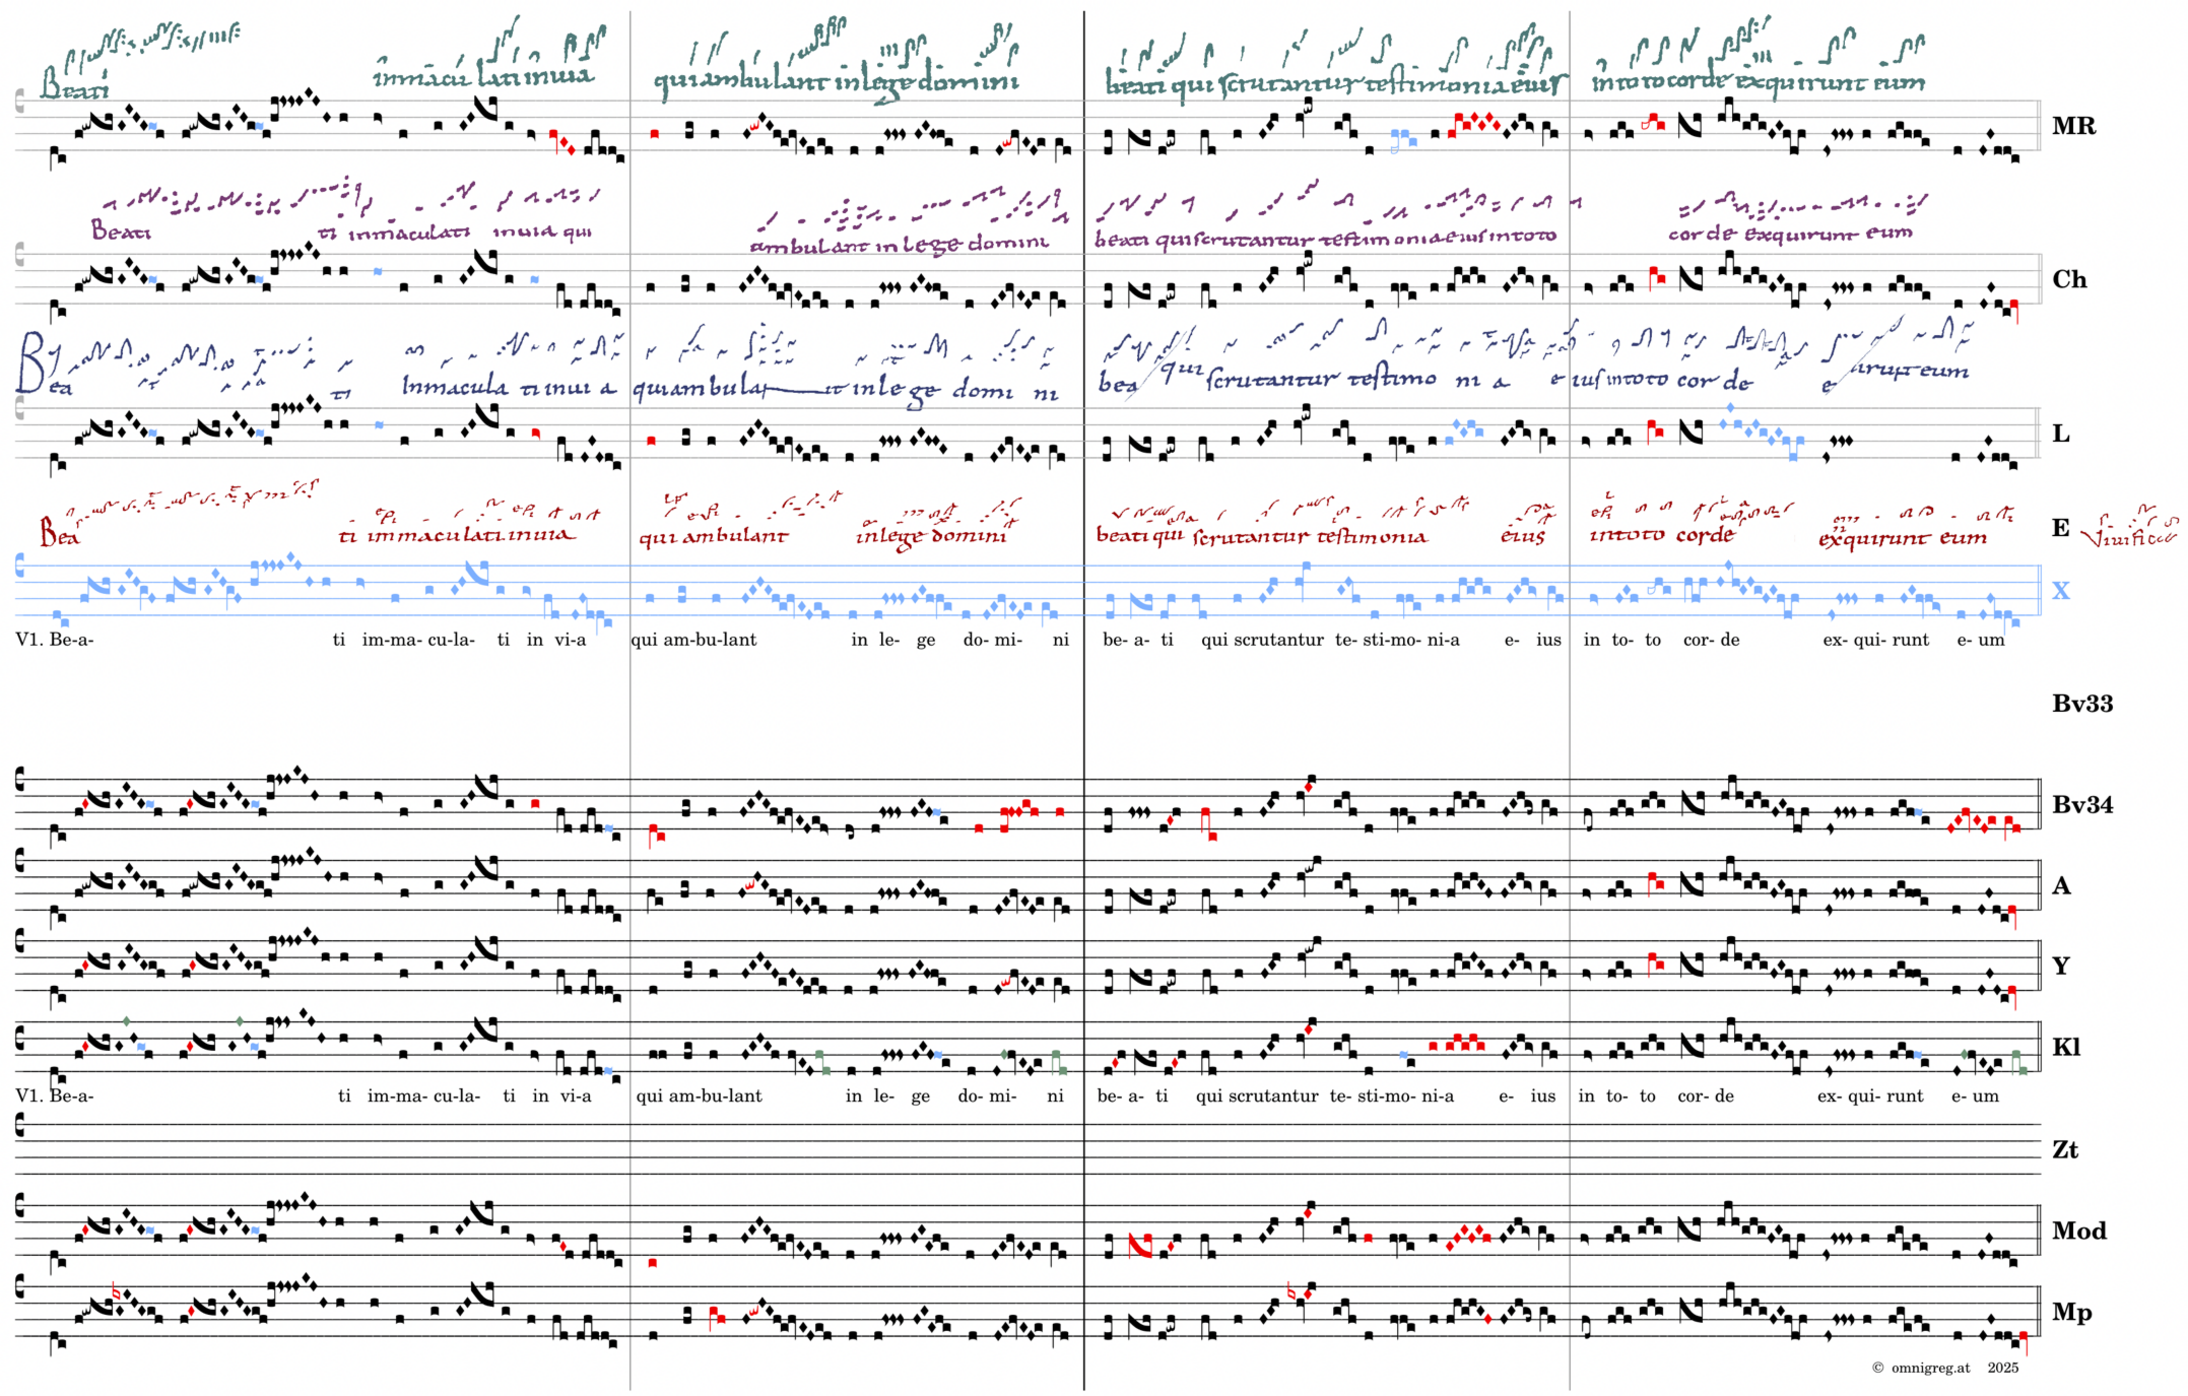 Beati inmaculati in uia qui ambulant in lege domini beati qui scrutantur testimonia eius in toto corde exquirunt eum
MR
Beati ti inmaculati inuia qui ambulant in lege domini beati qui scrutantur testimonia eius in toto corde exquirunt eum
Ch
Bea ti Inmacula ti inui a qui ambula it in le ge domi ni bea qui scrutantur testimo ni a e ius in toto cor de e irunt eum
L
Bea ti immaculati in uia qui ambulant in lege domini beati qui scrutantur testimonia eius in toto corde exquirunt eum
E
X
V1. Be-a- ti im-ma- cu-la- ti in vi-a qui am-bu-lant in le- ge do- mi- ni be- a- ti qui scrutantur te- sti-mo- ni-a e- ius in to- to cor- de ex- qui- runt e- um
Bv33
Bv34
A
Y
Kl
V1. Be-a- ti im-ma- cu-la- ti in vi-a qui am-bu-lant in le- ge do- mi- ni be- a- ti qui scrutantur te- sti-mo- ni-a e- ius in to- to cor- de ex- qui- runt e- um
Zt
Mod
Mp
© omnigreg.at 2025